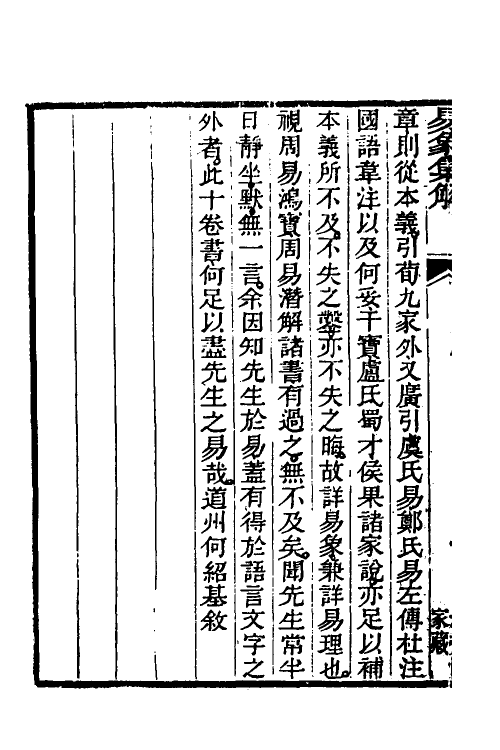 易象集解
家藏
章則從本義引荀九家外又廣引虞氏易鄭氏易左傳杜注
國語韋注以及何妥干寶盧氏蜀才侯果諸家說亦足以補
本義所不及不失之鑿亦不失之晦故詳易象兼詳易理也
視周易鴻寶周易潛解諸書有過之無不及矣聞先生常半
日靜坐默無一言余因知先生於易蓋有得於語言文字之
外者此十卷書何足以盡先生之易哉道州何紹基敘